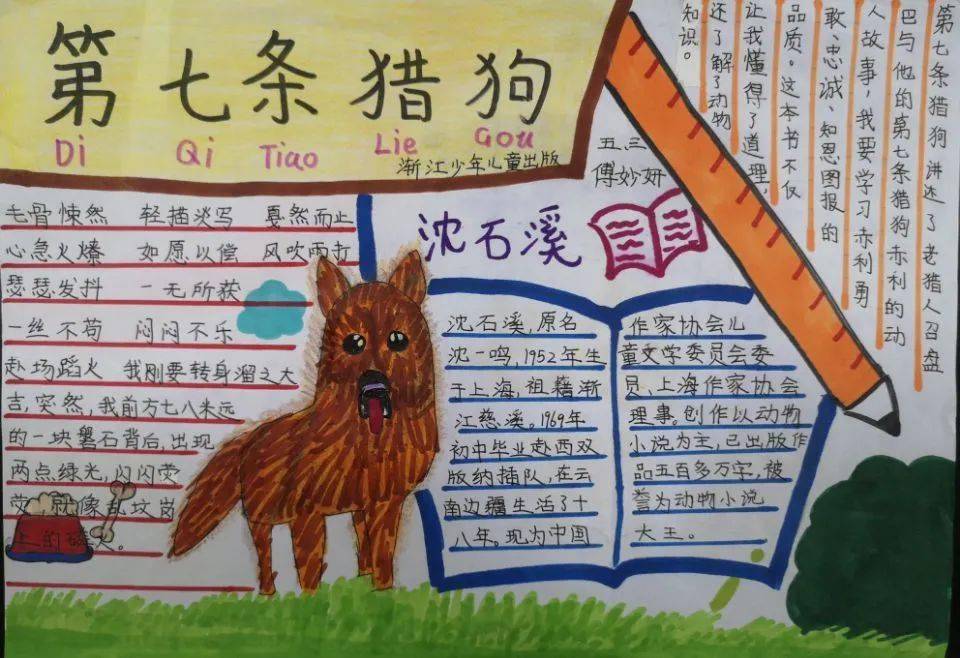 第七条猎狗
Di Qi Tiao Lie Gou
浙江少年儿童出版
五三
傅妙妍
第七条猎狗讲达了老猎人召盘
巴与他的第七条猎狗赤利的动
人故事,我要学习赤利勇
敢、忠诚、知恩图报的
品质。这本书不仅
让我懂得了道理,
还了解了动物
知识。
沈石溪
毛骨悚然 轻描淡写 戛然而止
心急火燎 如愿以偿 风吹雨打
瑟瑟发抖 一无所获
一丝不苟 闷闷不乐
赴场蹈火 我刚要转身溜之大
吉,突然,我前方七八米远
的一块磐石背后,出现
两点绿光,闪闪荧
荧,就像乱坟岗
上的磷火。
沈石溪,原名
沈一鸣,1952年生
于上海,祖籍浙
江慈溪。1969年
初中毕业赴西双
版纳插队,在云
南边疆生活了十
八年。现为中国
作家协会儿
童文学委员会委
员、上海作家协会
理事。创作以动物
小说为主,已出版作
品五百多万字,被
誉为动物小说
大王。